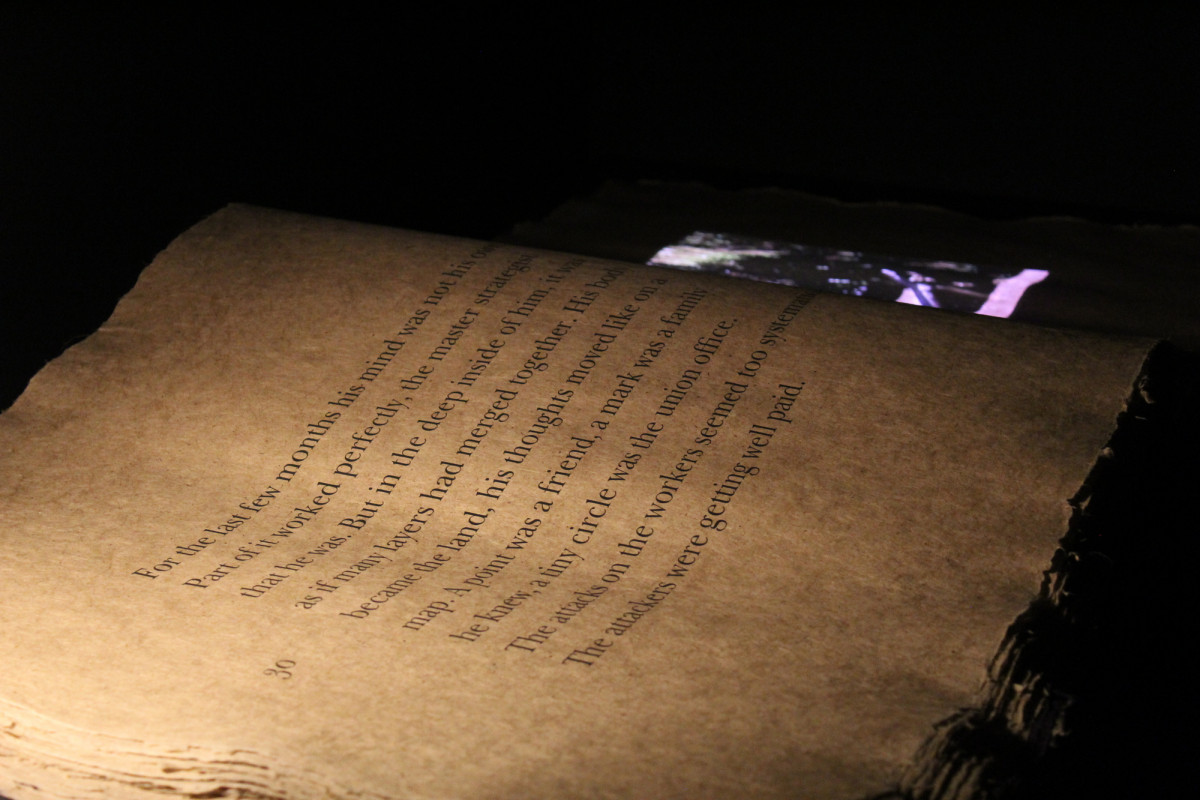 For the last few months his mind was not his
Part of it worked perfectly, the master strategist
that he was. But in the deep inside of him, it was
as if many layers had merged together. His body
became the land, his thoughts moved like on a
map. A point was a friend, a mark was a family
he knew, a tiny circle was the union office.
The attacks on the workers seemed too systematic.
The attackers were getting well paid.
30